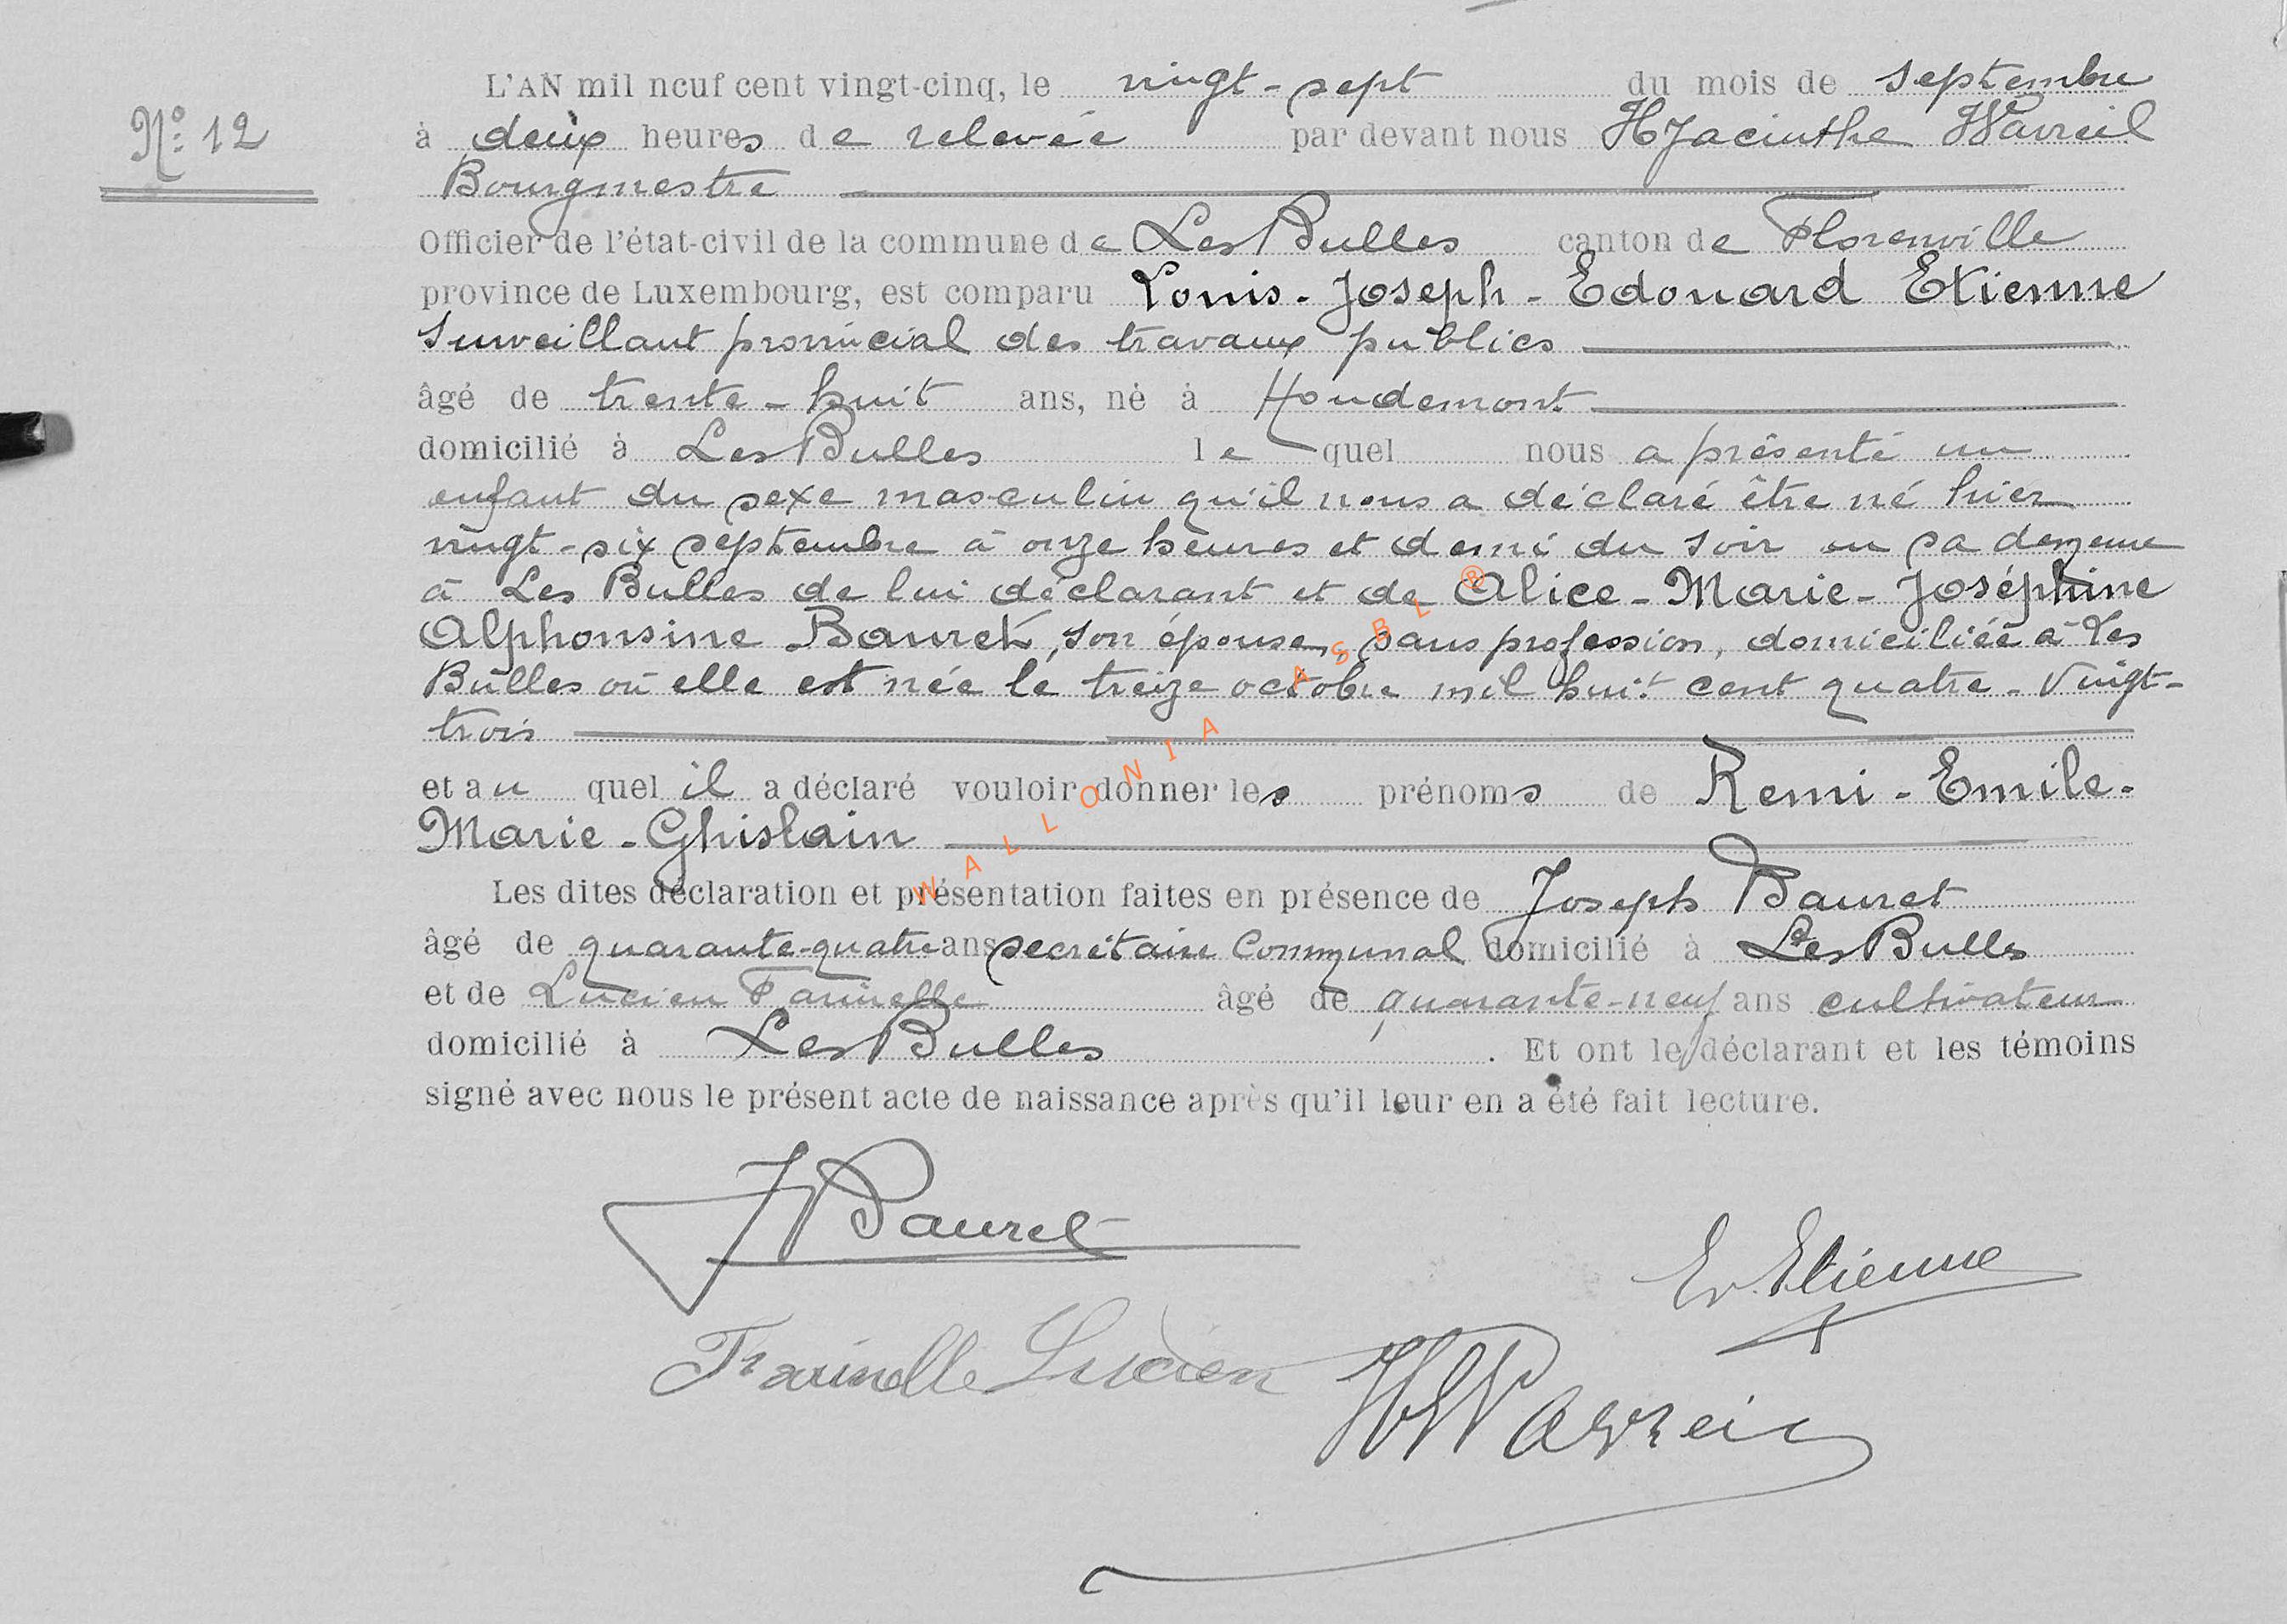 N° 12
L'AN mil neuf cent vingt-cinq, le vingt-sept du mois de septembre
à deux heures de relevée par devant nous Hyacinthe Wavreil
Bourgmestre
Officier de l'état-civil de la commune de Les Bulles canton de Florenville
province de Luxembourg, est comparu Louis-Joseph-Edouard Etienne
Surveillant provincial des travaux publics
âgé de trente-huit ans, né à Houdemont
domicilié à Les Bulles lequel nous a présenté un
enfant du sexe masculin qu'il nous a déclaré être né hier
vingt-six septembre à onze heures et demi du soir en sa demeure
à Les Bulles de lui déclarant et de Alice-Marie-Joséphine
Alphonsine Bauret, son épouse, sans profession, domiciliée à Les
Bulles où elle est née le treize octobre mil huit cent quatre-vingt-
trois
et au quel il a déclaré vouloir donner les prénoms de Remi-Emile-
Marie-Ghislain
Les dites déclaration et présentation faites en présence de Joseph Bauret
âgé de quarante-quatre ans secrétaire Communal domicilié à Les Bulles
et de Lucien Farinelle âgé de quarante-neuf ans cultivateur
domicilié à Les Bulles. Et ont le déclarant et les témoins
signé avec nous le présent acte de naissance après qu'il leur en a été fait lecture.
J Bauret
Ed. Etienne
Farinelle Lucien
H Wavreil
WALLONIA ASBL ®